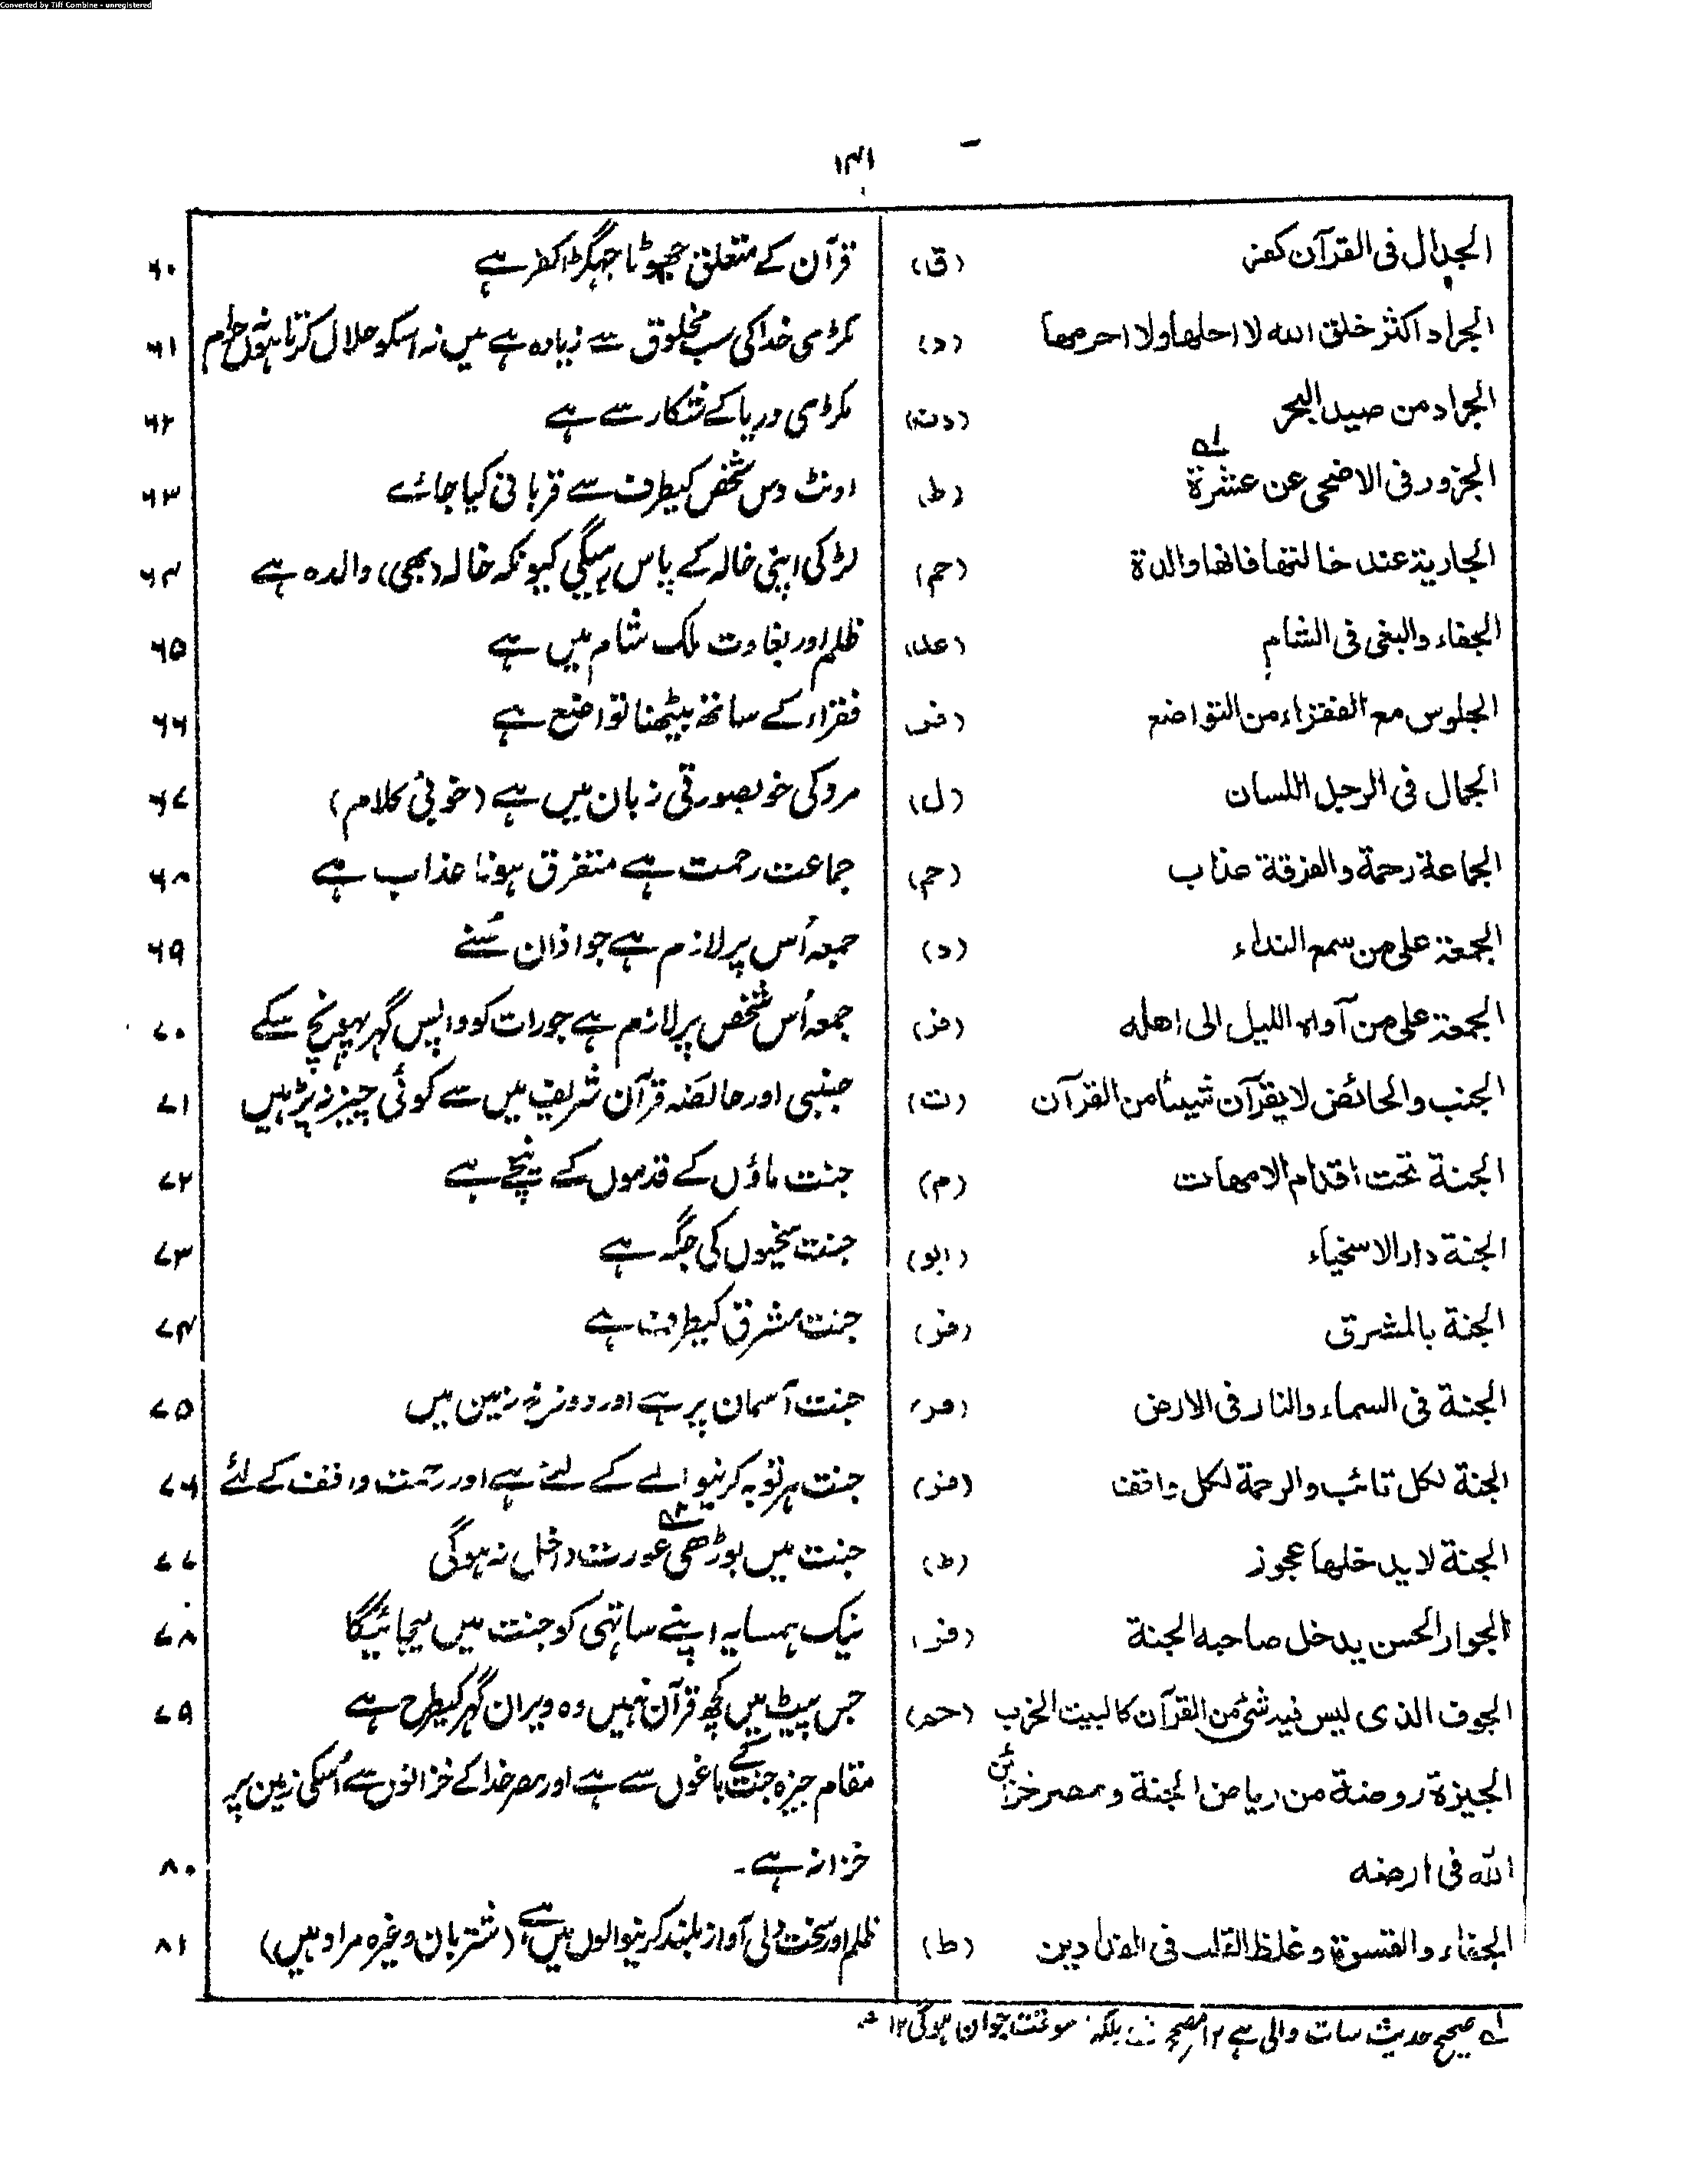 Converted by Tiff Combine - unregistered
۱۴۱
الجدال فی القرآن کفر (ق) قرآن کے متعلق جھوٹا جہگڑا کفر ہے ۶۰
الجراد اکثر خلق اللہ لا احلھا ولا احرمھا (د) مکڑی خدا کی سب مخلوق سے زیادہ ہے میں نہ اسکو حلال کرتا ہوں نہ حرام ۶۱
الجراد من صید البحر (دت) مکڑی دریا کے شکار سے ہے ۶۲
الجزور فی الاضحی عن عشرة لہ (ط) اونٹ دس شخص کیطرف سے قربانی کیا جائے ۶۳
الجاریة عند خالتھا فانھا والدة (حم) لڑکی اپنی خالہ کے پاس رہیگی کیونکہ خالہ (بھی) والدہ ہے ۶۴
الجفاء والبغی فی الشام (عد) ظلم اور بغاوت ملک شام میں ہے ۶۵
الجلوس مع الفقراء من التواضع (فر) فقراء کے ساتھ بیٹھنا تواضع ہے ۶۶
الجمال فی الرجل اللسان (ل) مرد کی خوبصورتی زبان میں ہے (خوبئ کلام) ۶۷
الجماعة رحمة والفرقة عذاب (حم) جماعت رحمت ہے متفرق ہونا عذاب ہے ۶۸
الجمعة علی من سمع النداء (د) جمعہ اُس پر لازم ہے جو اذان سُنے ۶۹
الجمعة علی من آواہ اللیل الی اھلہ (فر) جمعہ اُس شخص پر لازم ہے جو رات کو واپس گہر پہونچ سکے ۷۰
الجنب والحائض لا یقرآن شیئا من القرآن (ت) جنبی اور حائضہ قرآن شریف میں سے کوئی چیز نہ پڑہیں ۷۱
الجنة تحت اقدام الامھات (م) جنت ماؤں کے قدموں کے نیچے ہے ۷۲
الجنة دار الاسخیاء (ابو) جنت سخیوں کی جگہ ہے ۷۳
الجنة بالمشرق (فر) جنت مشرق کیطرف ہے ۷۴
الجنة فی السماء والنار فی الارض (فر) جنت آسمان پر ہے اور دوزخ زمین میں ۷۵
الجنة لکل تائب والرحمة لکل واقف (فر) جنت ہر توبہ کرنیوالے کے لئے ہے اور رحمت واقف کے لئے ۷۶
الجنة لا یدخلھا عجوز (ط) جنت میں بوڑھی عورت داخل نہ ہوگی ۷۷
الجوار الحسن یدخل صاحبہ الجنة (فر) نیک ہمسایہ اپنے ساتہی کو جنت میں لیجائیگا ۷۸
الجوف الذی لیس فیہ شئ من القرآن کالبیت الخرب (حم) جس پیٹ میں کچھ قرآن نہیں وہ ویران گہر کیطرح ہے ۷۹
الجیزة روضة من ریاض الجنة ومصر خزائن مقام جیزہ جنت کے باغوں سے ہے اور مصر خدا کے خزانوں سے اُسکی زمین پر
اللہ فی ارضہ خزانہ ہے۔ ۸۰
الجفاء والقسوة وغلظ القلب فی الفدادین (ط) ظلم اور سخت دلی آواز بلند کرنیوالوں میں ہے، (شتربان وغیرہ مراد ہیں) ۸۱
لہ صحیح حدیث سات والی ہے ۱۲ مصحح بلکہ جوان ہوگی ۱۲